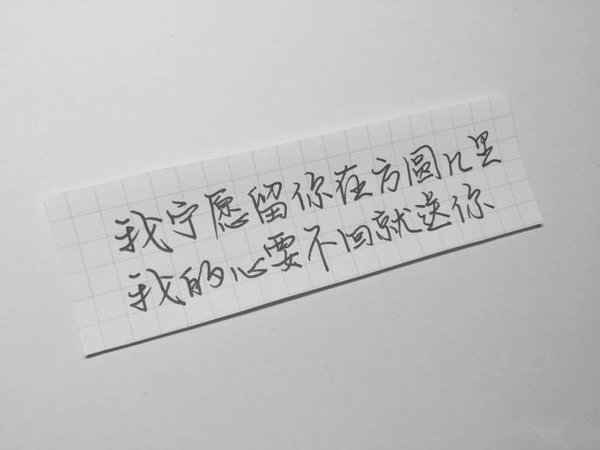 我宁愿留你在方圆几里
我的心要不回就送你